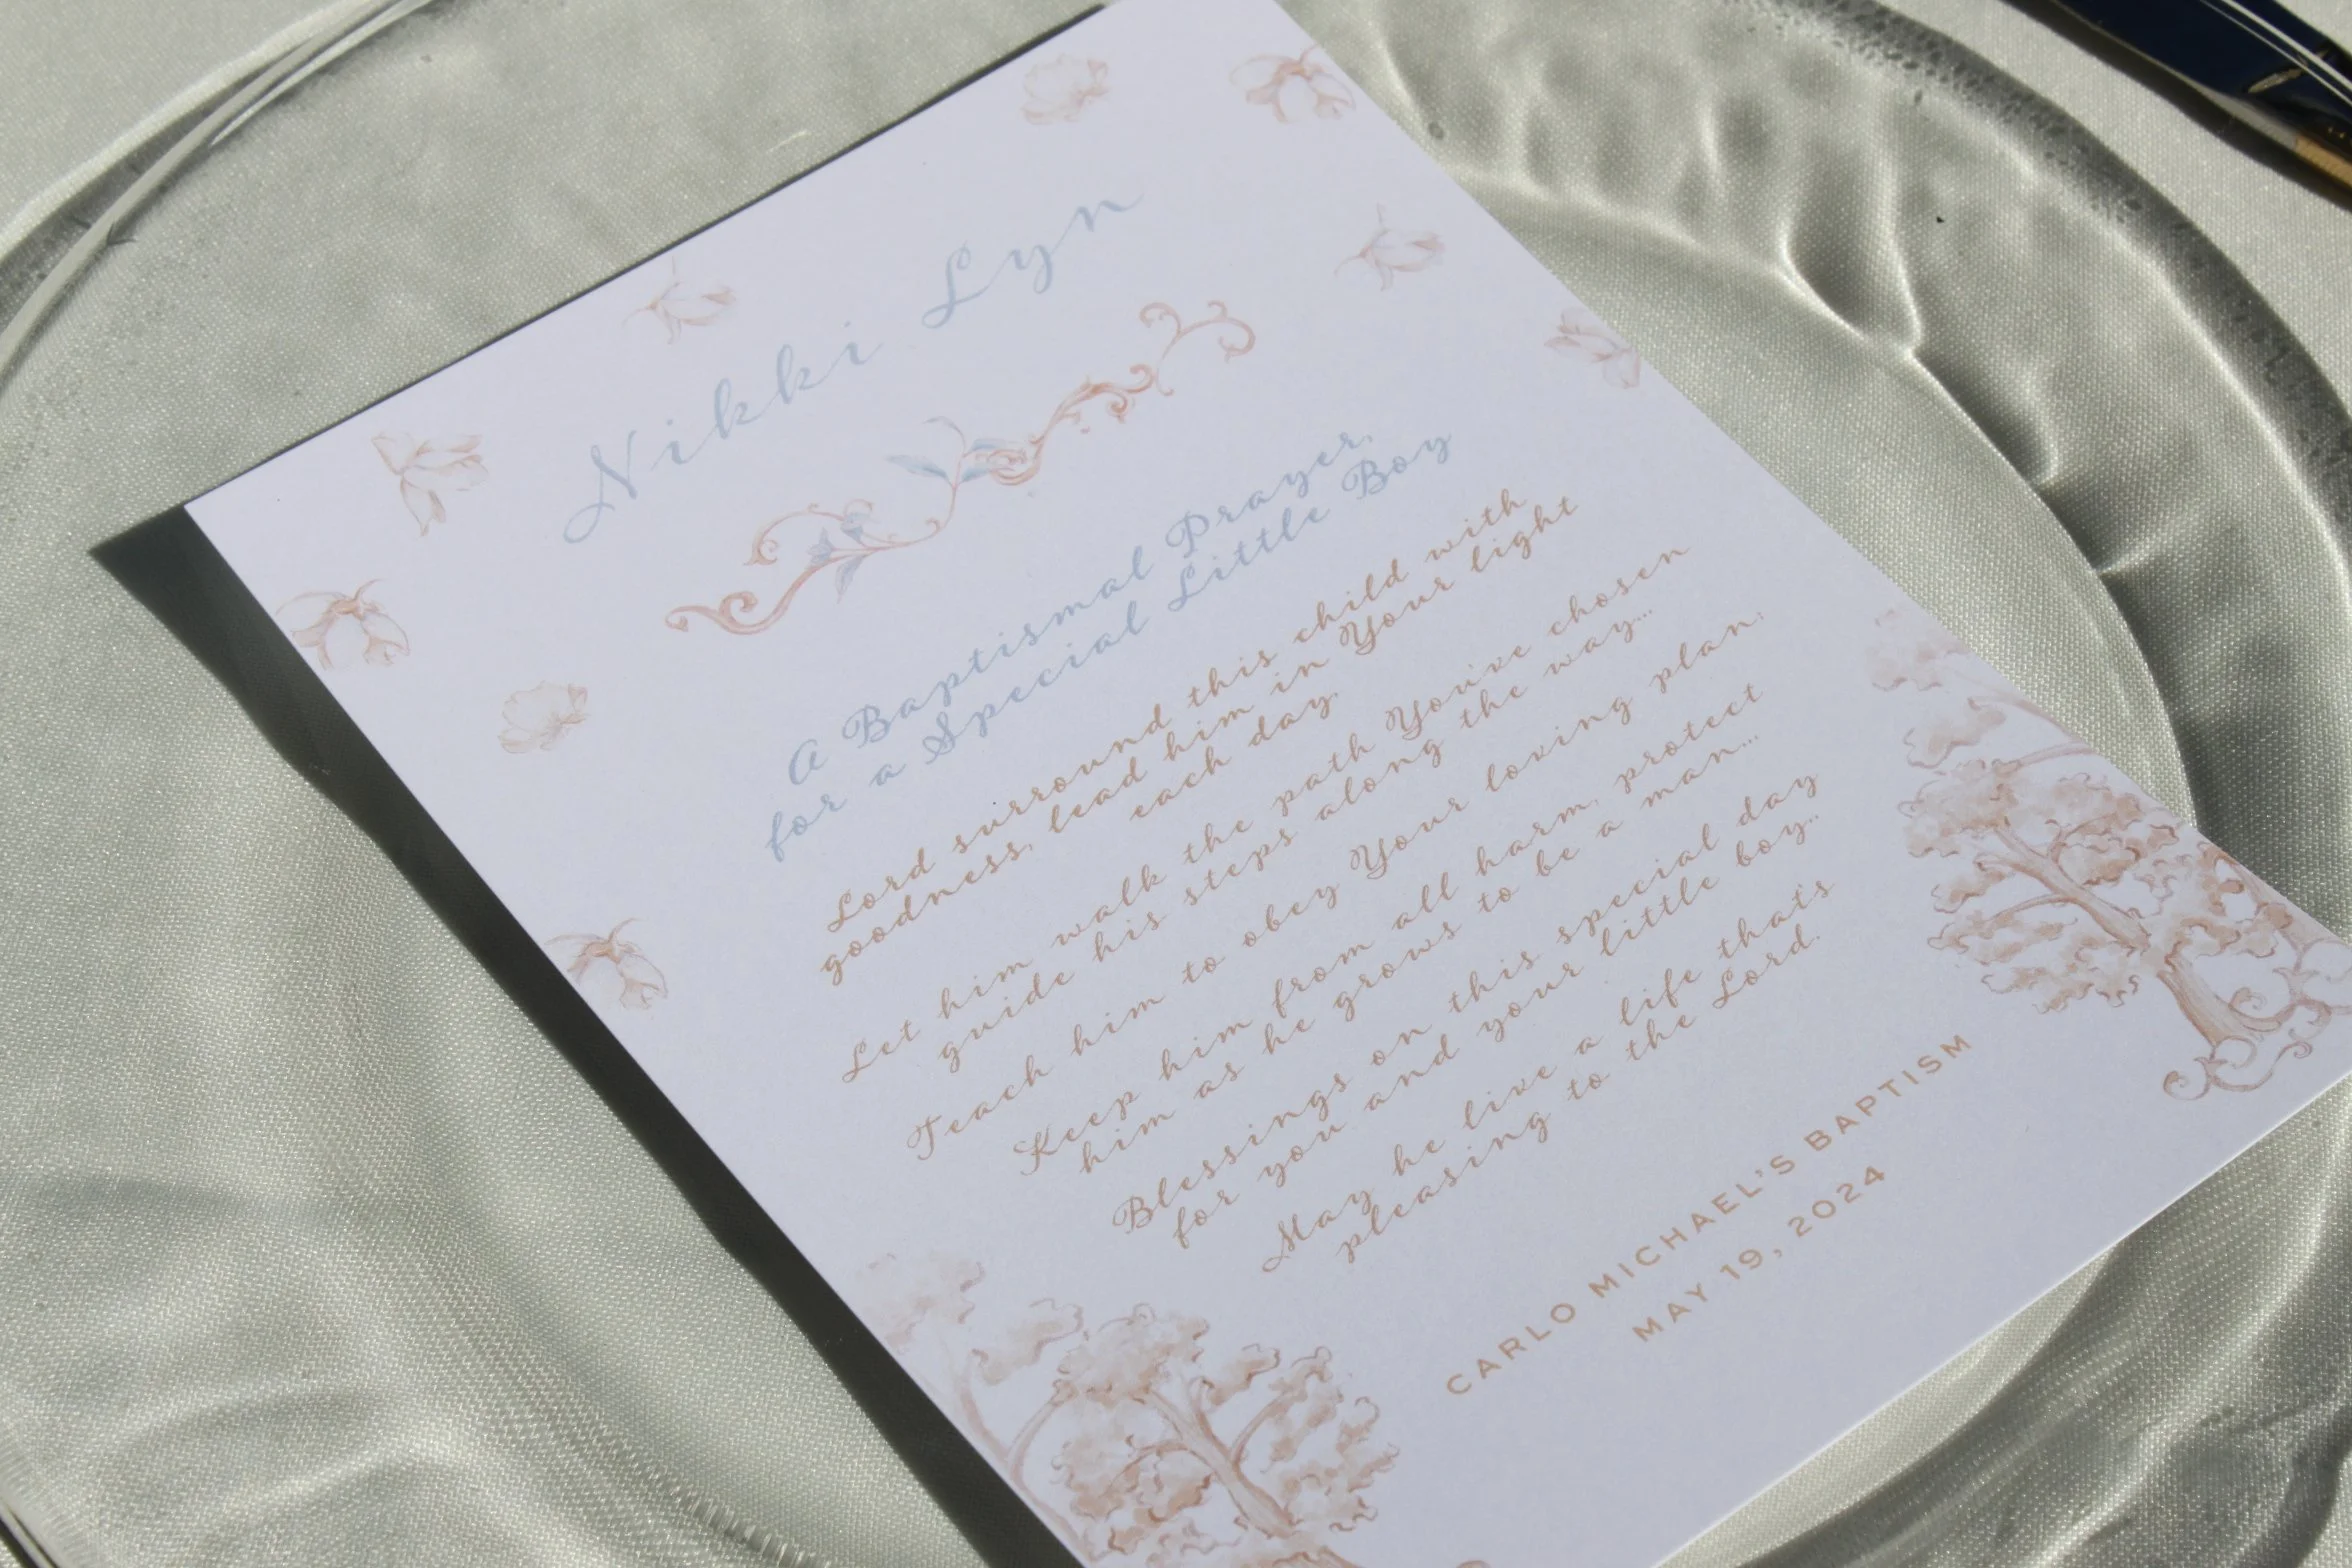 Nikki Lyn
A Baptismal Prayer,
for a Special Little Boy
Lord surround this child with
goodness, lead him in Your light
each day.
Let him walk the path You've chosen
guide his steps along the way...
Teach him to obey Your loving plan,
Keep him from all harm, protect
him as he grows to be a man...
Blessings on this special day
for you and your little boy..
May he live a life that's
pleasing to the Lord.
CARLO MICHAEL'S BAPTISM
MAY 19, 2024